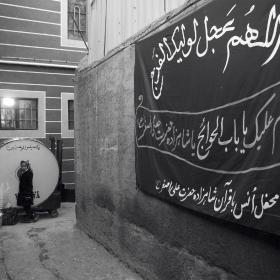 اللهم عجل لولیک الفرج
علیک یا باب الحوائج یا شاهزاده حضرت علی اصغر
محفل انس با قرآن شاهزاده حضرت علی اصغر